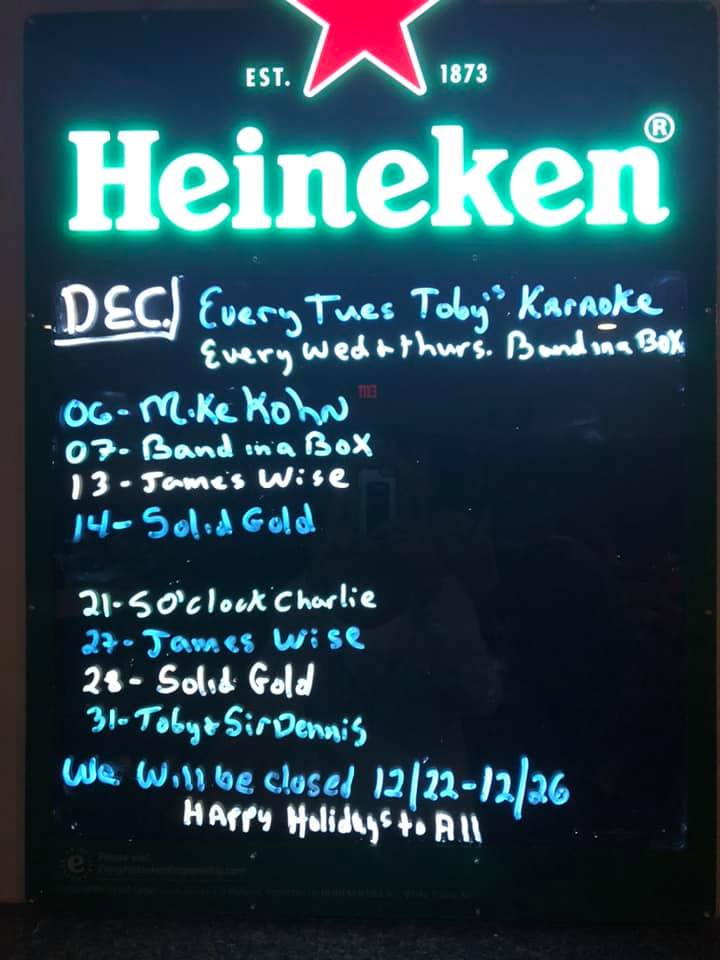 EST. 1873
Heineken®
DEC. Every Tues Toby's Karaoke
Every Wed & thurs. Band in a Box
06 - Mike Kohn
07 - Band in a Box
13 - James Wise
14 - Solid Gold
21 - 5 O'clock Charlie
27 - James Wise
28 - Solid Gold
31 - Toby & Sir Dennis
We Will be closed 12/22-12/26
HAppy Holidays to All